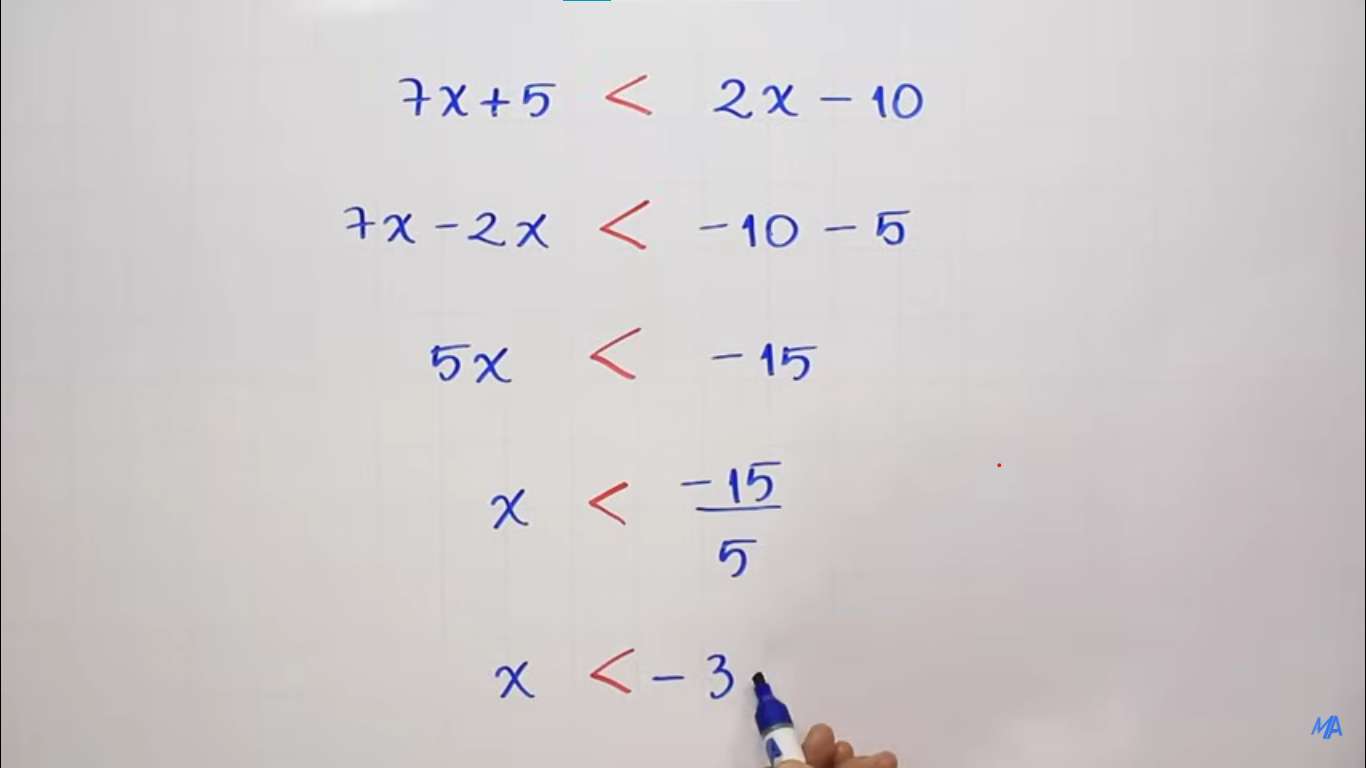 7x+5 < 2x - 10
7x - 2x < -10 - 5
5x < -15
x < -15/5
x < -3
MA